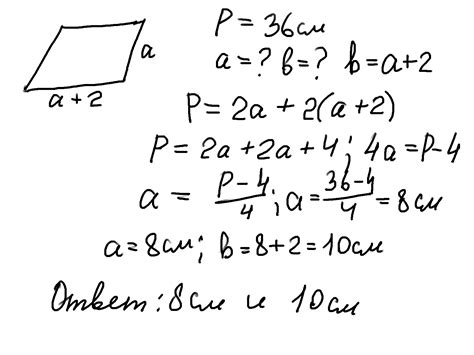 P = 36см
a
a = ? в = ? в = a + 2
a + 2
P = 2a + 2(a + 2)
P = 2a + 2a + 4; 4a = P - 4
a = P - 4 / 4; a = 36 - 4 / 4 = 8см
a = 8см; в = 8 + 2 = 10см
Ответ: 8см и 10см